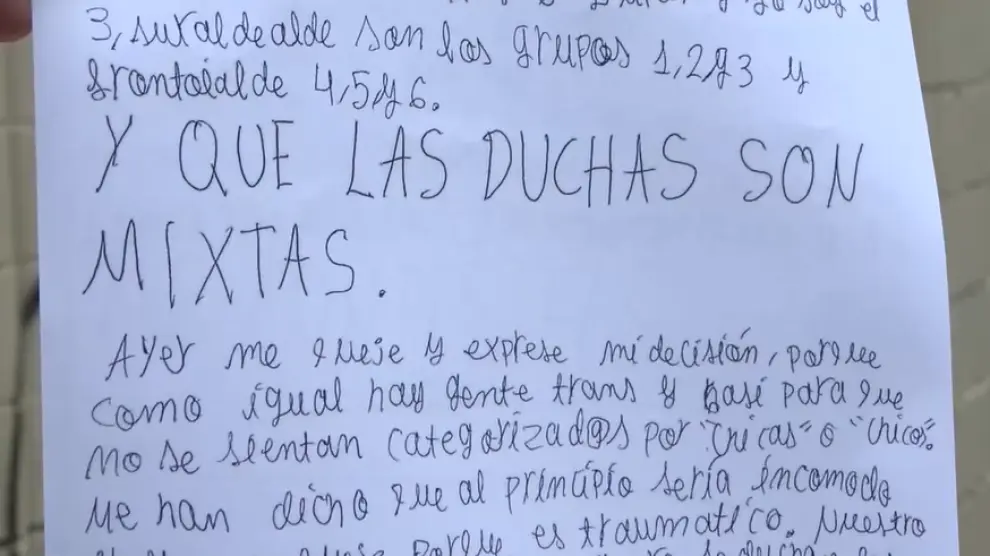 y yo soy el
3, suraldealde son los grupos 1,2y3 y
frontoialde 4,5,y 6.
Y QUE LAS DUCHAS SON
MIXTAS.
Ayer me queje y exprese mi decisión, porque
como igual hay gente trans y basi para que
no se sientan categorizad@s por "chicas" o "chicos".
Me han dicho que al principio sería incomodo
porque es traumatico. Nuestro